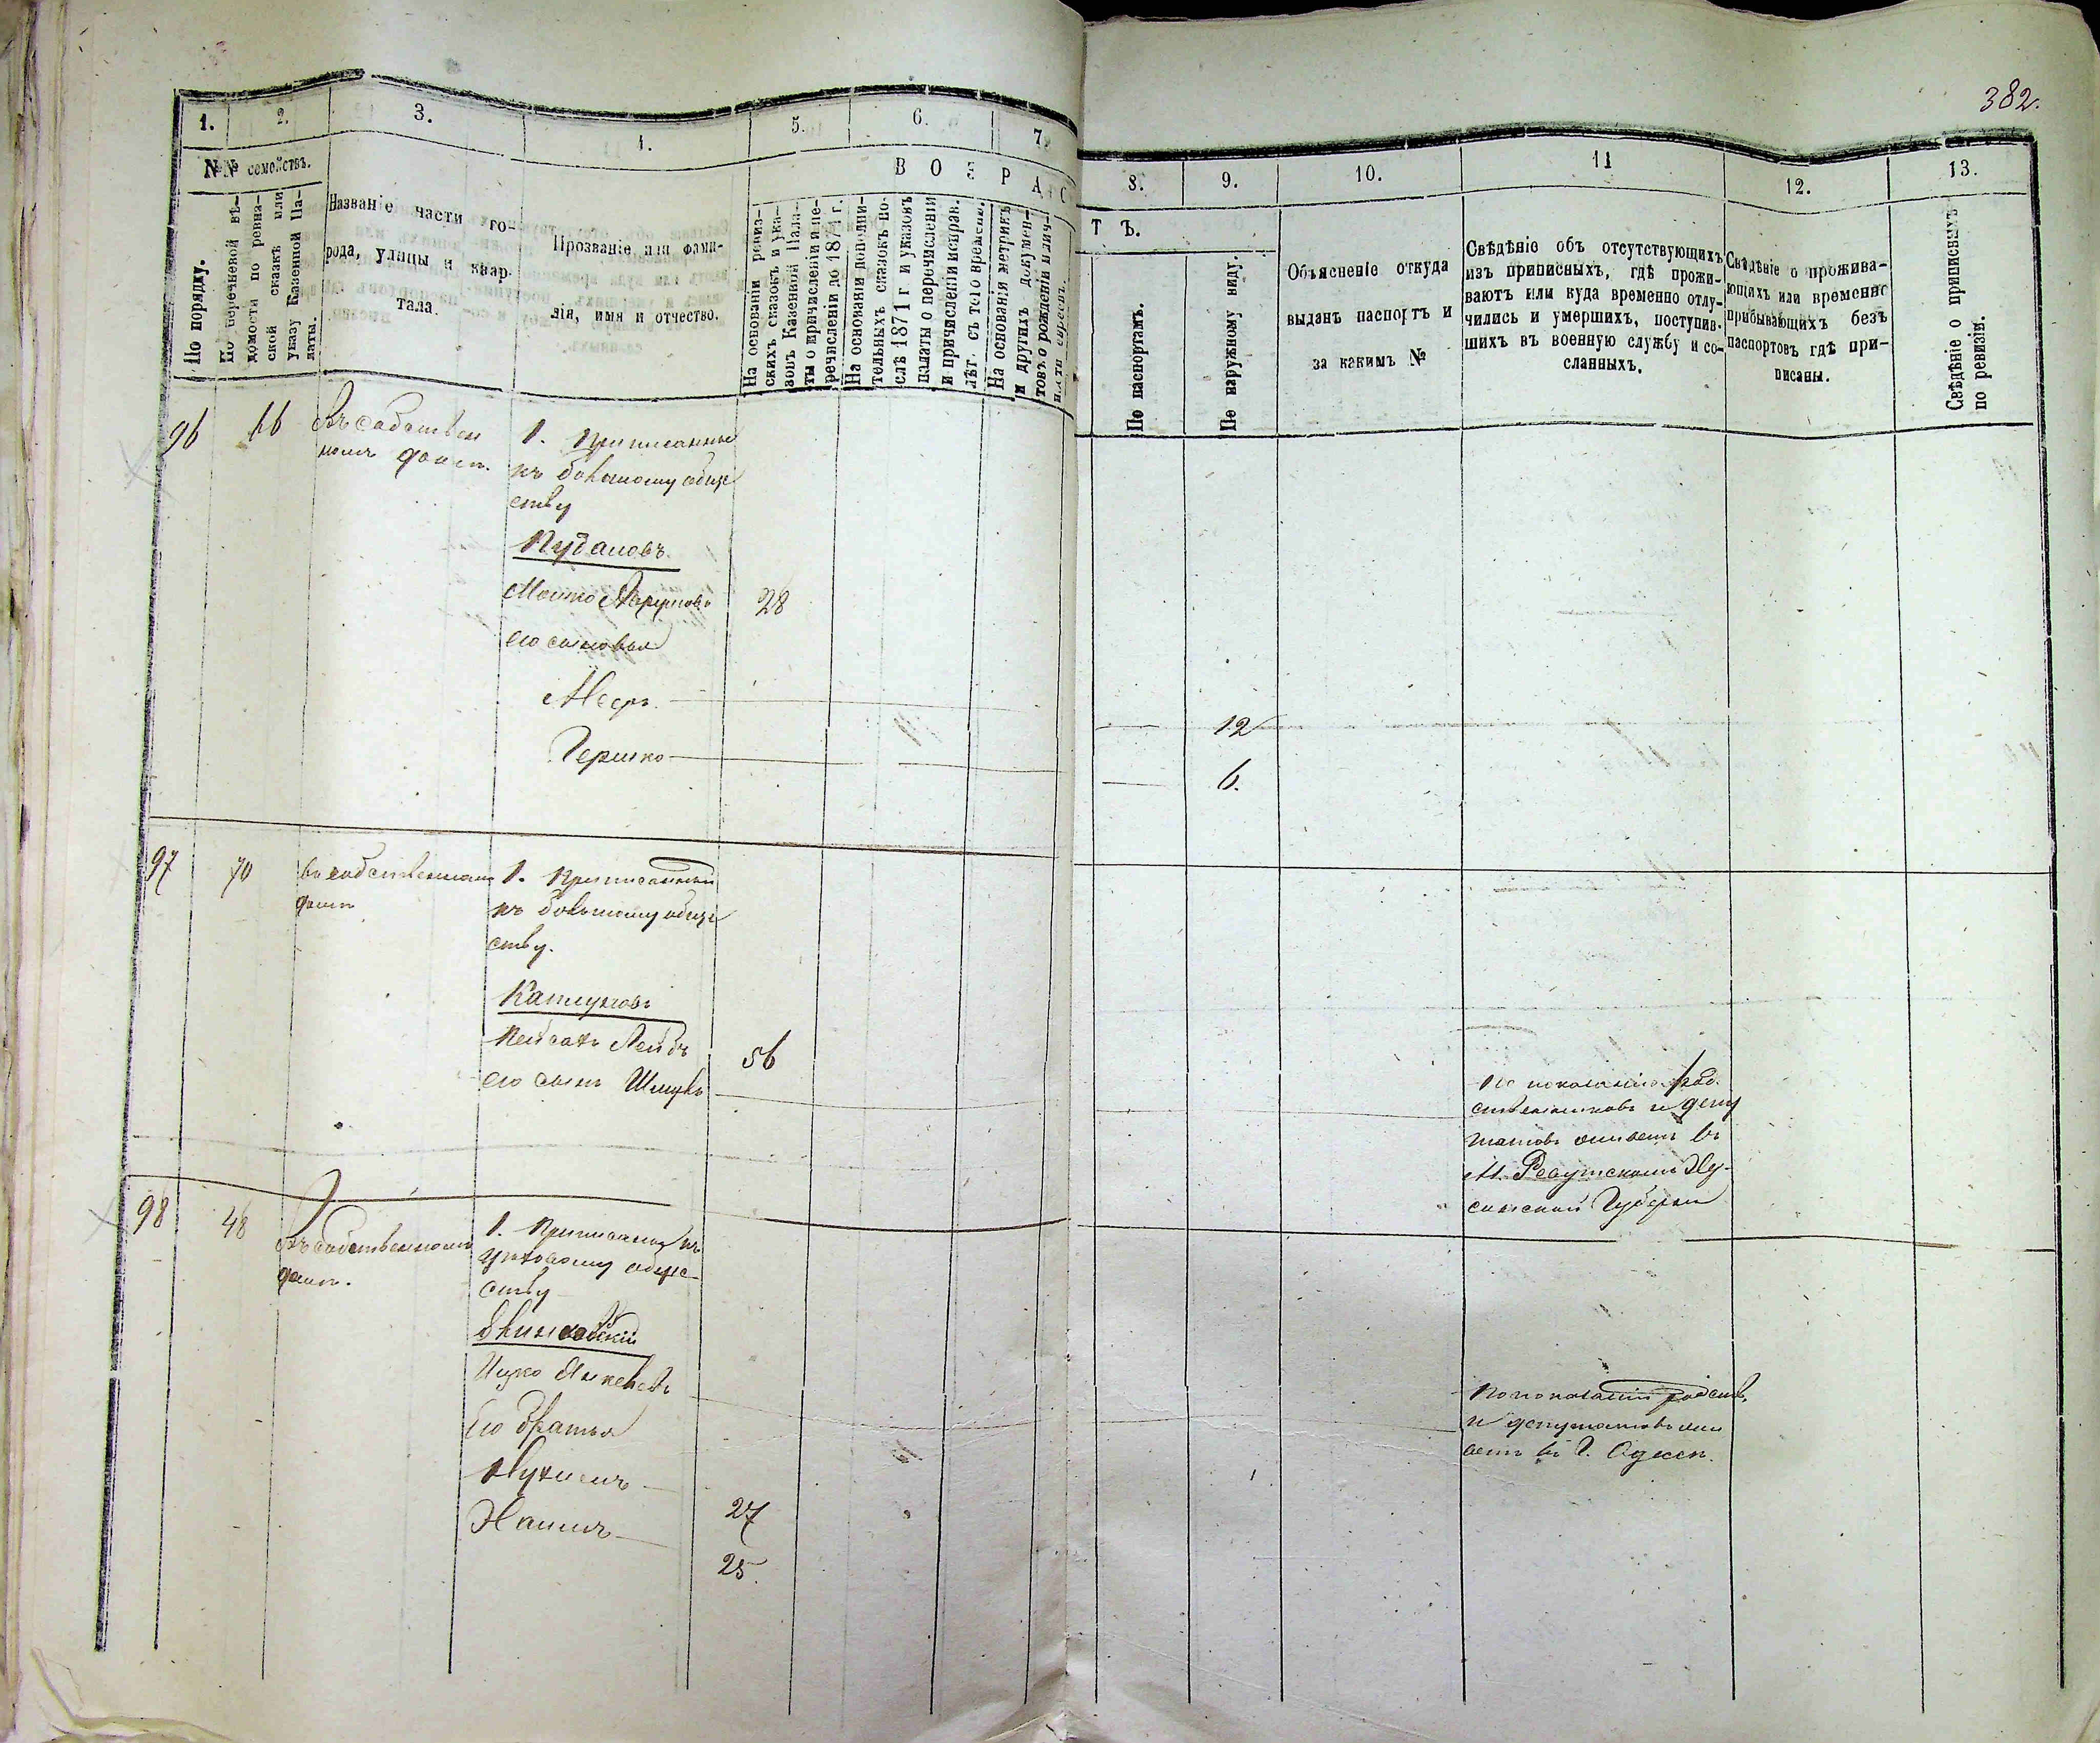 382.
1.
2.
3.
4.
5.
6.
7.
8.
9.
10.
11
12.
13.
№№ семействъ.
По порядку.
По перечневой вѣ-
домости по ревиз-
ской сказкѣ или
указу Казенной Па-
латы.
Названіе части го-
рода, улицы и квар-
тала.
Прозваніе или фами-
лія, имя и отчество.
ВОЗРАС
ТЪ.
На основаніи ревиз-
скихъ сказокъ и ука-
зовъ Казенной Пала-
ты о причисленіи и пе-
речисленіи до 1871 г.
На основаніи дополни-
тельныхъ сказокъ по-
слѣ 1871 г. и указовъ
палаты о перечисленіи
и причисленіи исправ.
лѣт. съ того времени.
На основаніи метрикъ
и другихъ докумен-
товъ о рожденіи и лич-
По паспортамъ.
По наружному виду.
Объясненіе откуда
выданъ паспортъ и
за какимъ №
Свѣдѣніе объ отсутствующихъ
изъ приписныхъ, гдѣ прожи-
ваютъ или куда временно отлу-
чились и умершихъ, поступив-
шихъ въ военную службу и со-
сланныхъ.
Свѣдѣніе о прожива-
ющихъ или временно
прибывающихъ безъ
паспортовъ гдѣ при-
писаны.
Свѣдѣніе о приписныхъ
по ревизіи.
96
66
Въ собствен
номъ домѣ.
1. Приписанные
къ большому обще
ству
Мошко
28
его сыновья
Меер
12
Гершко
6.
97
70
въ собственномъ
домѣ
1. Приписанный
къ большому обще
ству.
Пейсахъ Лейбъ
56
его сынъ Шмуль
По показанію род
ственниковъ и депу
татовъ живетъ въ
М.
Губерніи
98
48
Въ собственномъ
домѣ.
1. Приписанные къ
обще-
ству
Ицко
Его братья
Нухимъ
27
Хаимъ
25.
По показанію родств.
и депутатовъ жи
ветъ въ Г. Одессѣ.